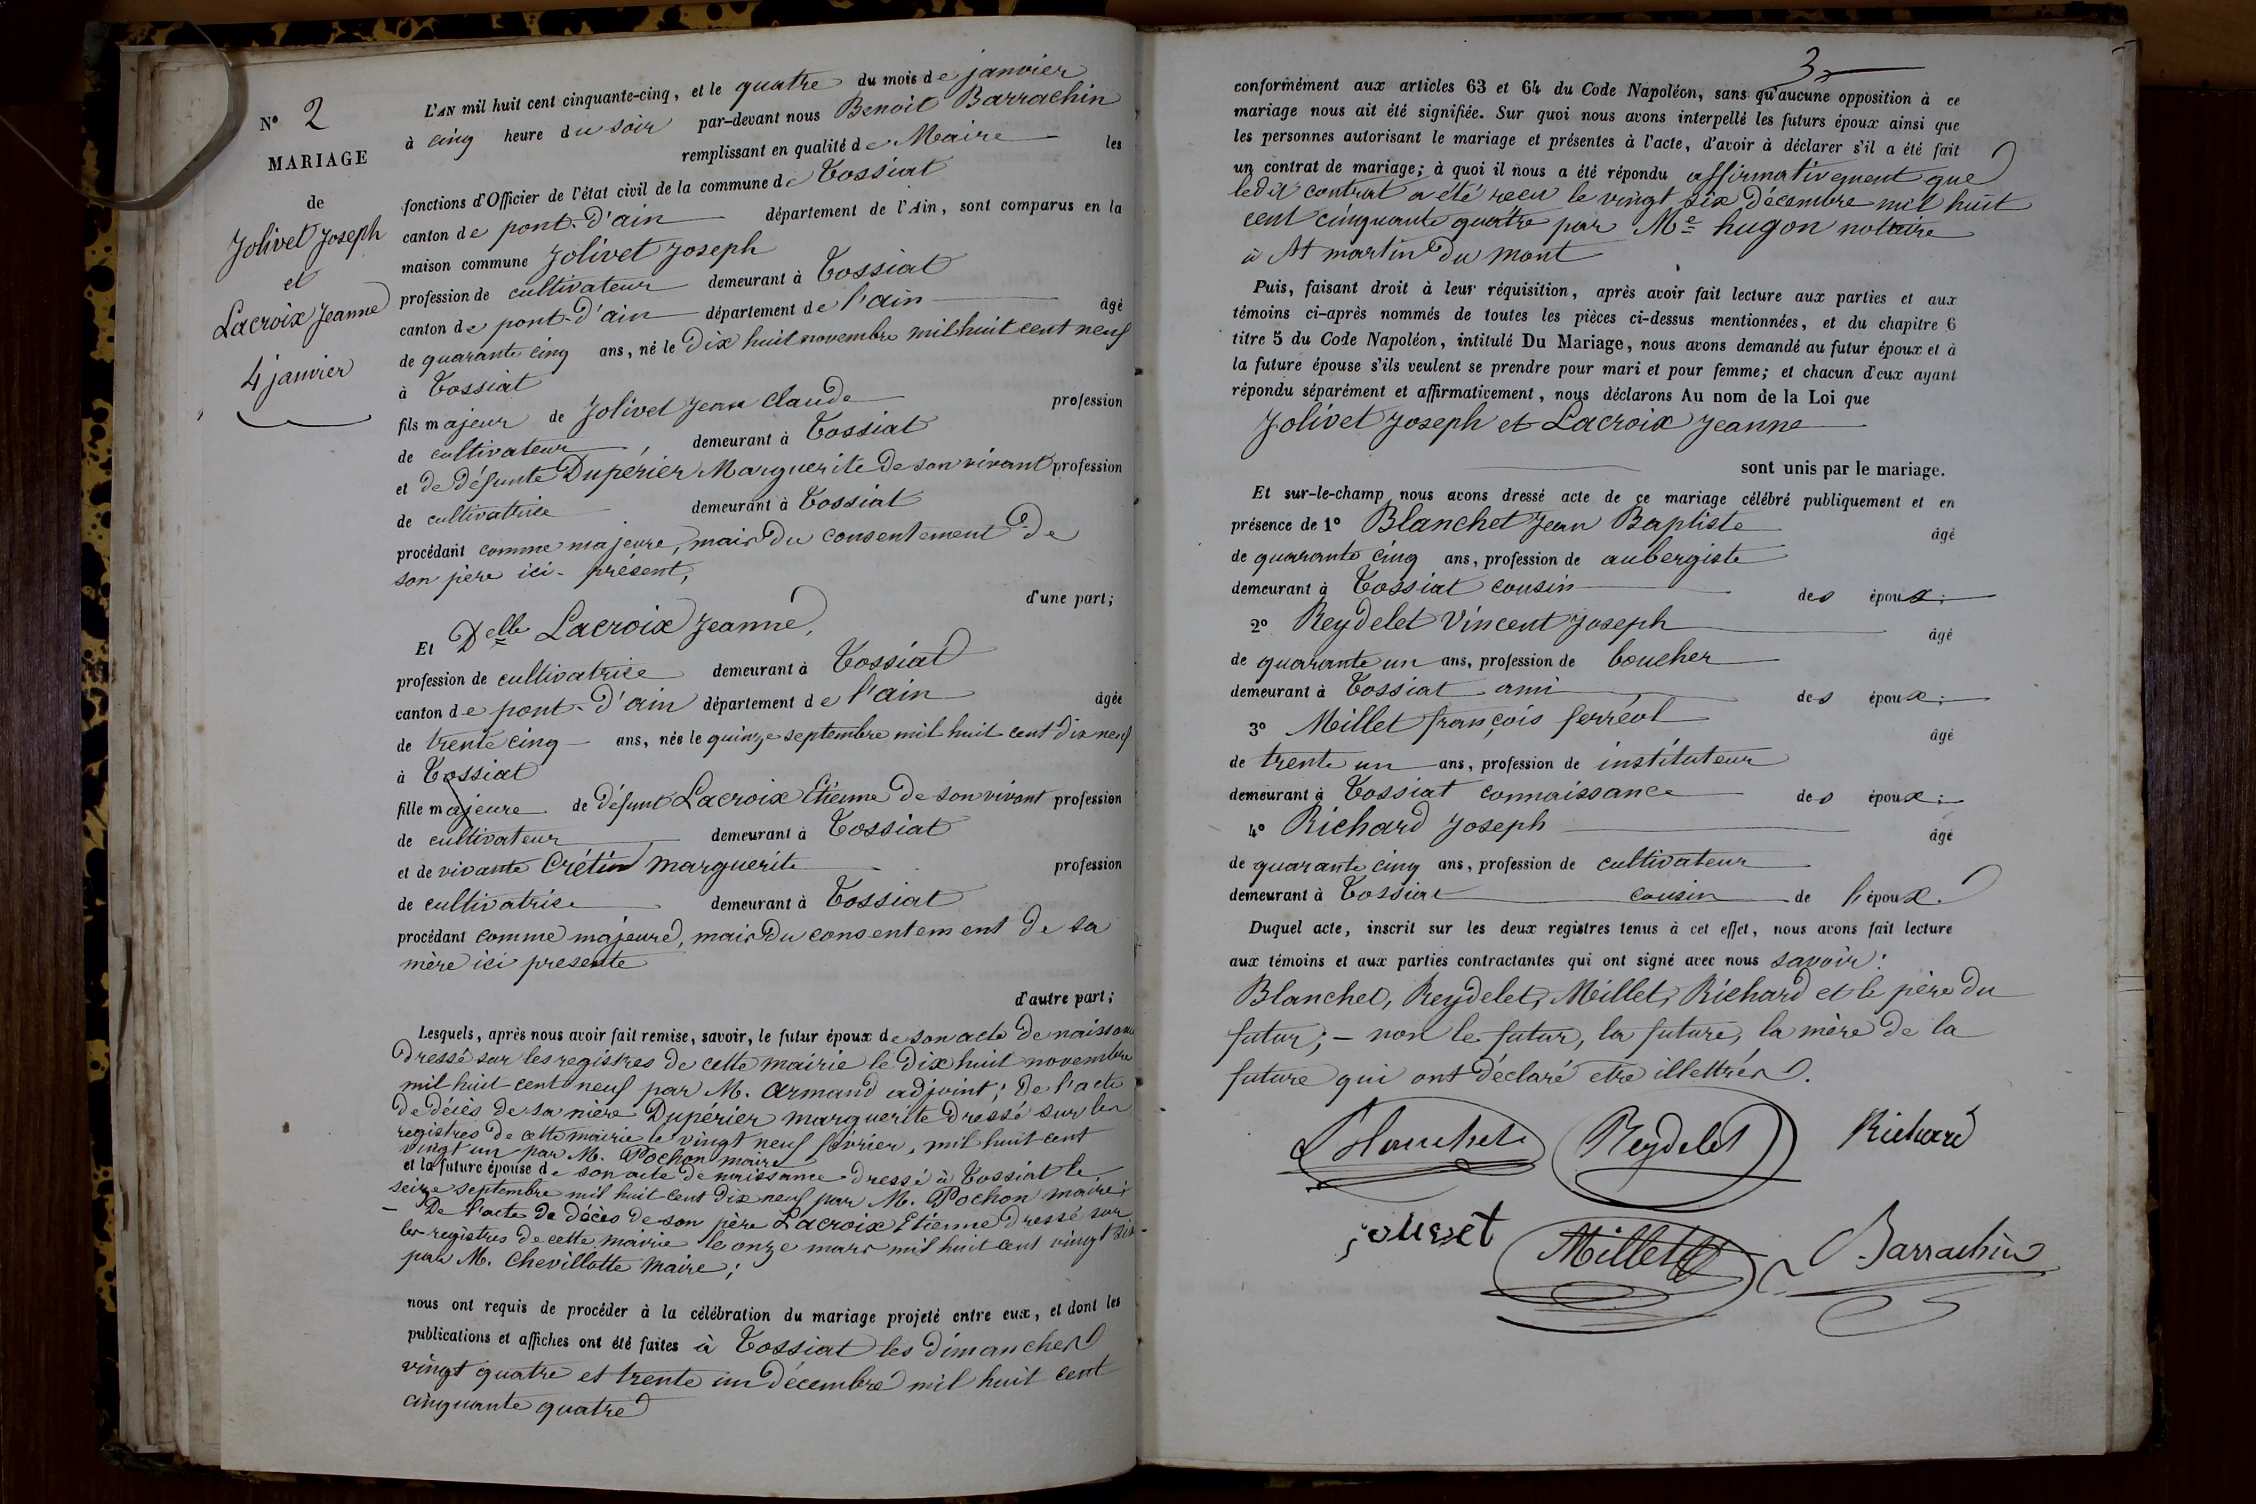 N° 2
MARIAGE
de
Jolivet Joseph
et
Lacroix Jeanne
4 janvier
L'AN mil huit cent cinquante-cinq, et le quatre du mois de janvier
à cinq heure du soir par-devant nous Benoit Barrachin
remplissant en qualité de Maire les
fonctions d'Officier de l'état civil de la commune de Tossiat
canton de pont-d'ain département de l'Ain, sont comparus en la
maison commune Jolivet Joseph
profession de cultivateur demeurant à Tossiat
canton de pont-d'ain département de l'ain âgé
de quarante cinq ans, né le Dix huit novembre mil huit cent neuf
à Tossiat
fils majeur de Jolivet Jean Claude profession
de cultivateur, demeurant à Tossiat
et de défunte Dupérier Marguerite de son vivant profession
de cultivatrice demeurant à Tossiat
procédant comme majeure, mais du consentement de
son père ici-présent,
d'une part;
Et Delle Lacroix Jeanne,
profession de cultivatrice demeurant à Tossiat
canton de pont-d'ain département de l'ain âgée
de trente cinq ans, née le quinze septembre mil huit cent dix neuf
à Tossiat
fille majeure de défunt Lacroix Etienne de son vivant profession
de cultivateur demeurant à Tossiat
et de vivante Crétin Marguerite profession
de cultivatrice demeurant à Tossiat
procédant comme majeure, mais du consentement de sa
mère ici présente
d'autre part;
Lesquels, après nous avoir fait remise, savoir, le futur époux de son acte de naissance
dressé sur les registres de cette mairie le dix huit novembre
mil huit cent neuf par M. Armand adjoint; De l'acte
de décès de sa mère Dupérier Marguerite dressé sur les
registres de cette mairie le vingt neuf février, mil huit cent
vingt un par M. Pochon maire
et la future épouse de son acte de naissance dressé à Tossiat le
seize septembre mil huit cent dix neuf par M. Pochon maire;
— De l'acte de décès de son père Lacroix Etienne dressé sur
les registres de cette mairie le onze mars mil huit cent vingt six
par M. Chevillotte Maire;
nous ont requis de procéder à la célébration du mariage projeté entre eux, et dont les
publications et affiches ont été faites à Tossiat les dimanches
vingt quatre et trente un décembre mil huit cent
cinquante quatre
3
conformément aux articles 63 et 64 du Code Napoléon, sans qu'aucune opposition à ce
mariage nous ait été signifiée. Sur quoi nous avons interpellé les futurs époux ainsi que
les personnes autorisant le mariage et présentes à l'acte, d'avoir à déclarer s'il a été fait
un contrat de mariage; à quoi il nous a été répondu affirmativement que
ledit contrat a été reçu le vingt six décembre mil huit
cent cinquante quatre par Me hugon notaire
à St martin du mont
Puis, faisant droit à leur réquisition, après avoir fait lecture aux parties et aux
témoins ci-après nommés de toutes les pièces ci-dessus mentionnées, et du chapitre 6
titre 5 du Code Napoléon, intitulé Du Mariage, nous avons demandé au futur époux et à
la future épouse s'ils veulent se prendre pour mari et pour femme; et chacun d'eux ayant
répondu séparément et affirmativement, nous déclarons Au nom de la Loi que
Jolivet Joseph et Lacroix Jeanne
sont unis par le mariage.
Et sur-le-champ nous avons dressé acte de ce mariage célébré publiquement et en
présence de 1° Blanchet Jean Baptiste âgé
de quarante cinq ans, profession de aubergiste
demeurant à Tossiat cousin des époux;
2° Reydelet Vincent Joseph âgé
de quarante un ans, profession de boucher
demeurant à Tossiat ami des époux;
3° Millet françois ferréol âgé
de trente un ans, profession de instituteur
demeurant à Tossiat connaissance des époux;
4° Richard Joseph âgé
de quarante cinq ans, profession de cultivateur
demeurant à Tossiat cousin de l'époux.
Duquel acte, inscrit sur les deux registres tenus à cet effet, nous avons fait lecture
aux témoins et aux parties contractantes qui ont signé avec nous savoir:
Blanchet, Reydelet, Millet, Richard et le père du
futur; — non le futur, la future, la mère de la
future qui ont déclaré etre illettrés.
Blanchet Reydelet Richard
Millet Barrachin